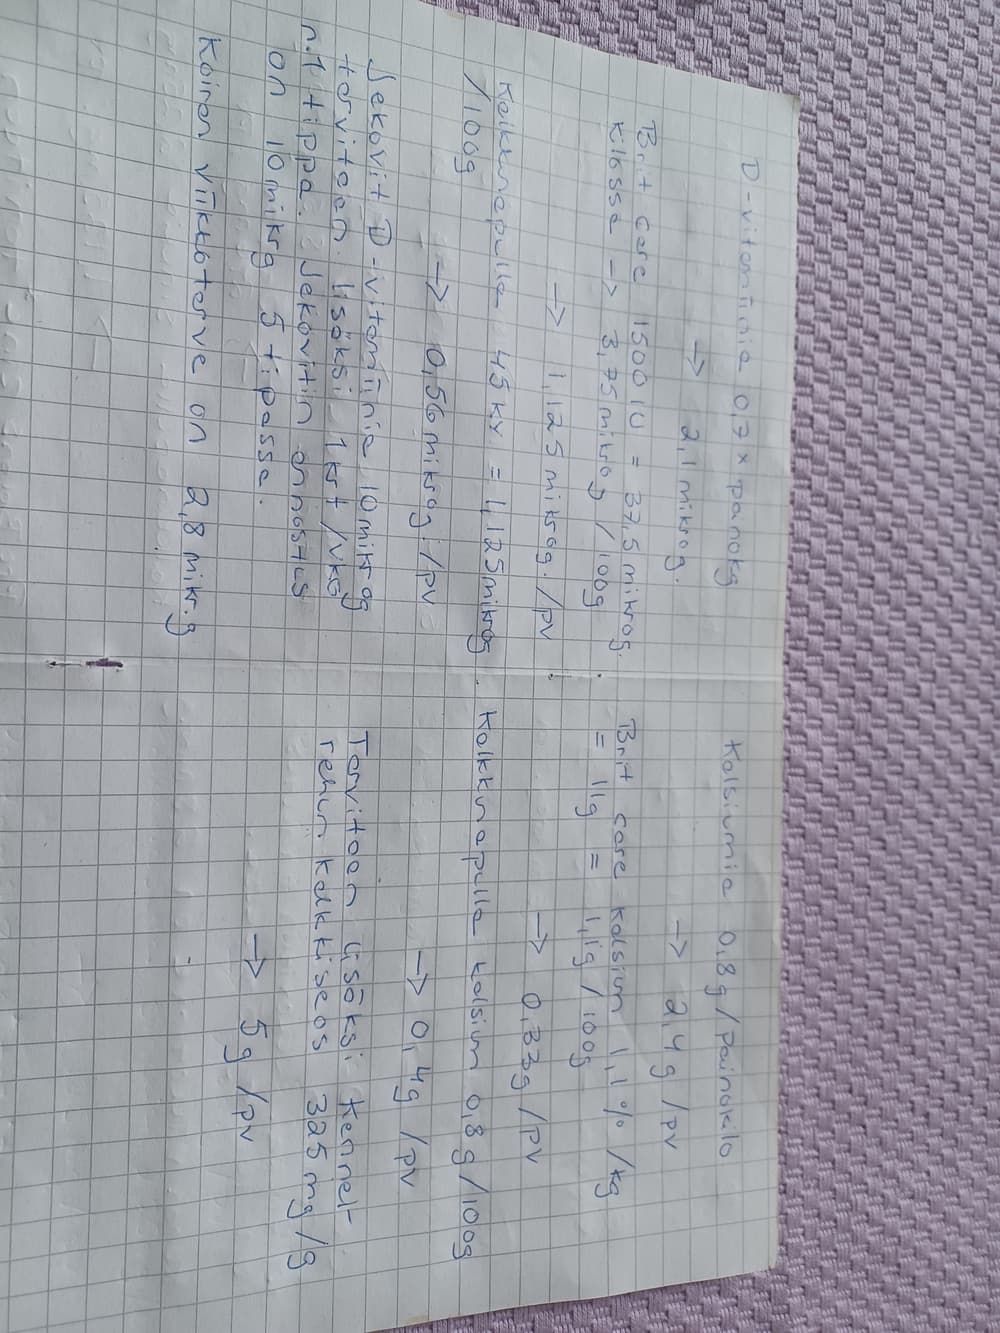 D-vitamiinia 0,7 x painokg
→ 2,1 mikrog.
Brit care 1500 IU = 37,5 mikrog.
kilossa → 3,75 mikrog / 100g
→ 1,125 mikrog. /pv
Kalkkunapulla 45 ky = 1,125 mikrog
/100g
→ 0,56 mikrog. /pv
Jekovit D-vitamiinia 10 mikrog
tarvitaan lisäksi 1 krt /vko
n.1 tippa. Jekovitin annostus
on 10 mikrg 5 tipassa.
Koiran viikkotarve on 2,8 mikr.g
Kalsiumia 0,8g / painokilo
→ 2,4g /pv
Brit care kalsium 1,1% /kg
= 11g = 1,1g / 100g
→ 0,33g /pv
Kalkkunapulla kalsium 0,8g /100g
→ 0,4g /pv
Tarvitaan lisäksi Kennel-
rehun kalkkiseos 325 mg /g
→ 5g /pv